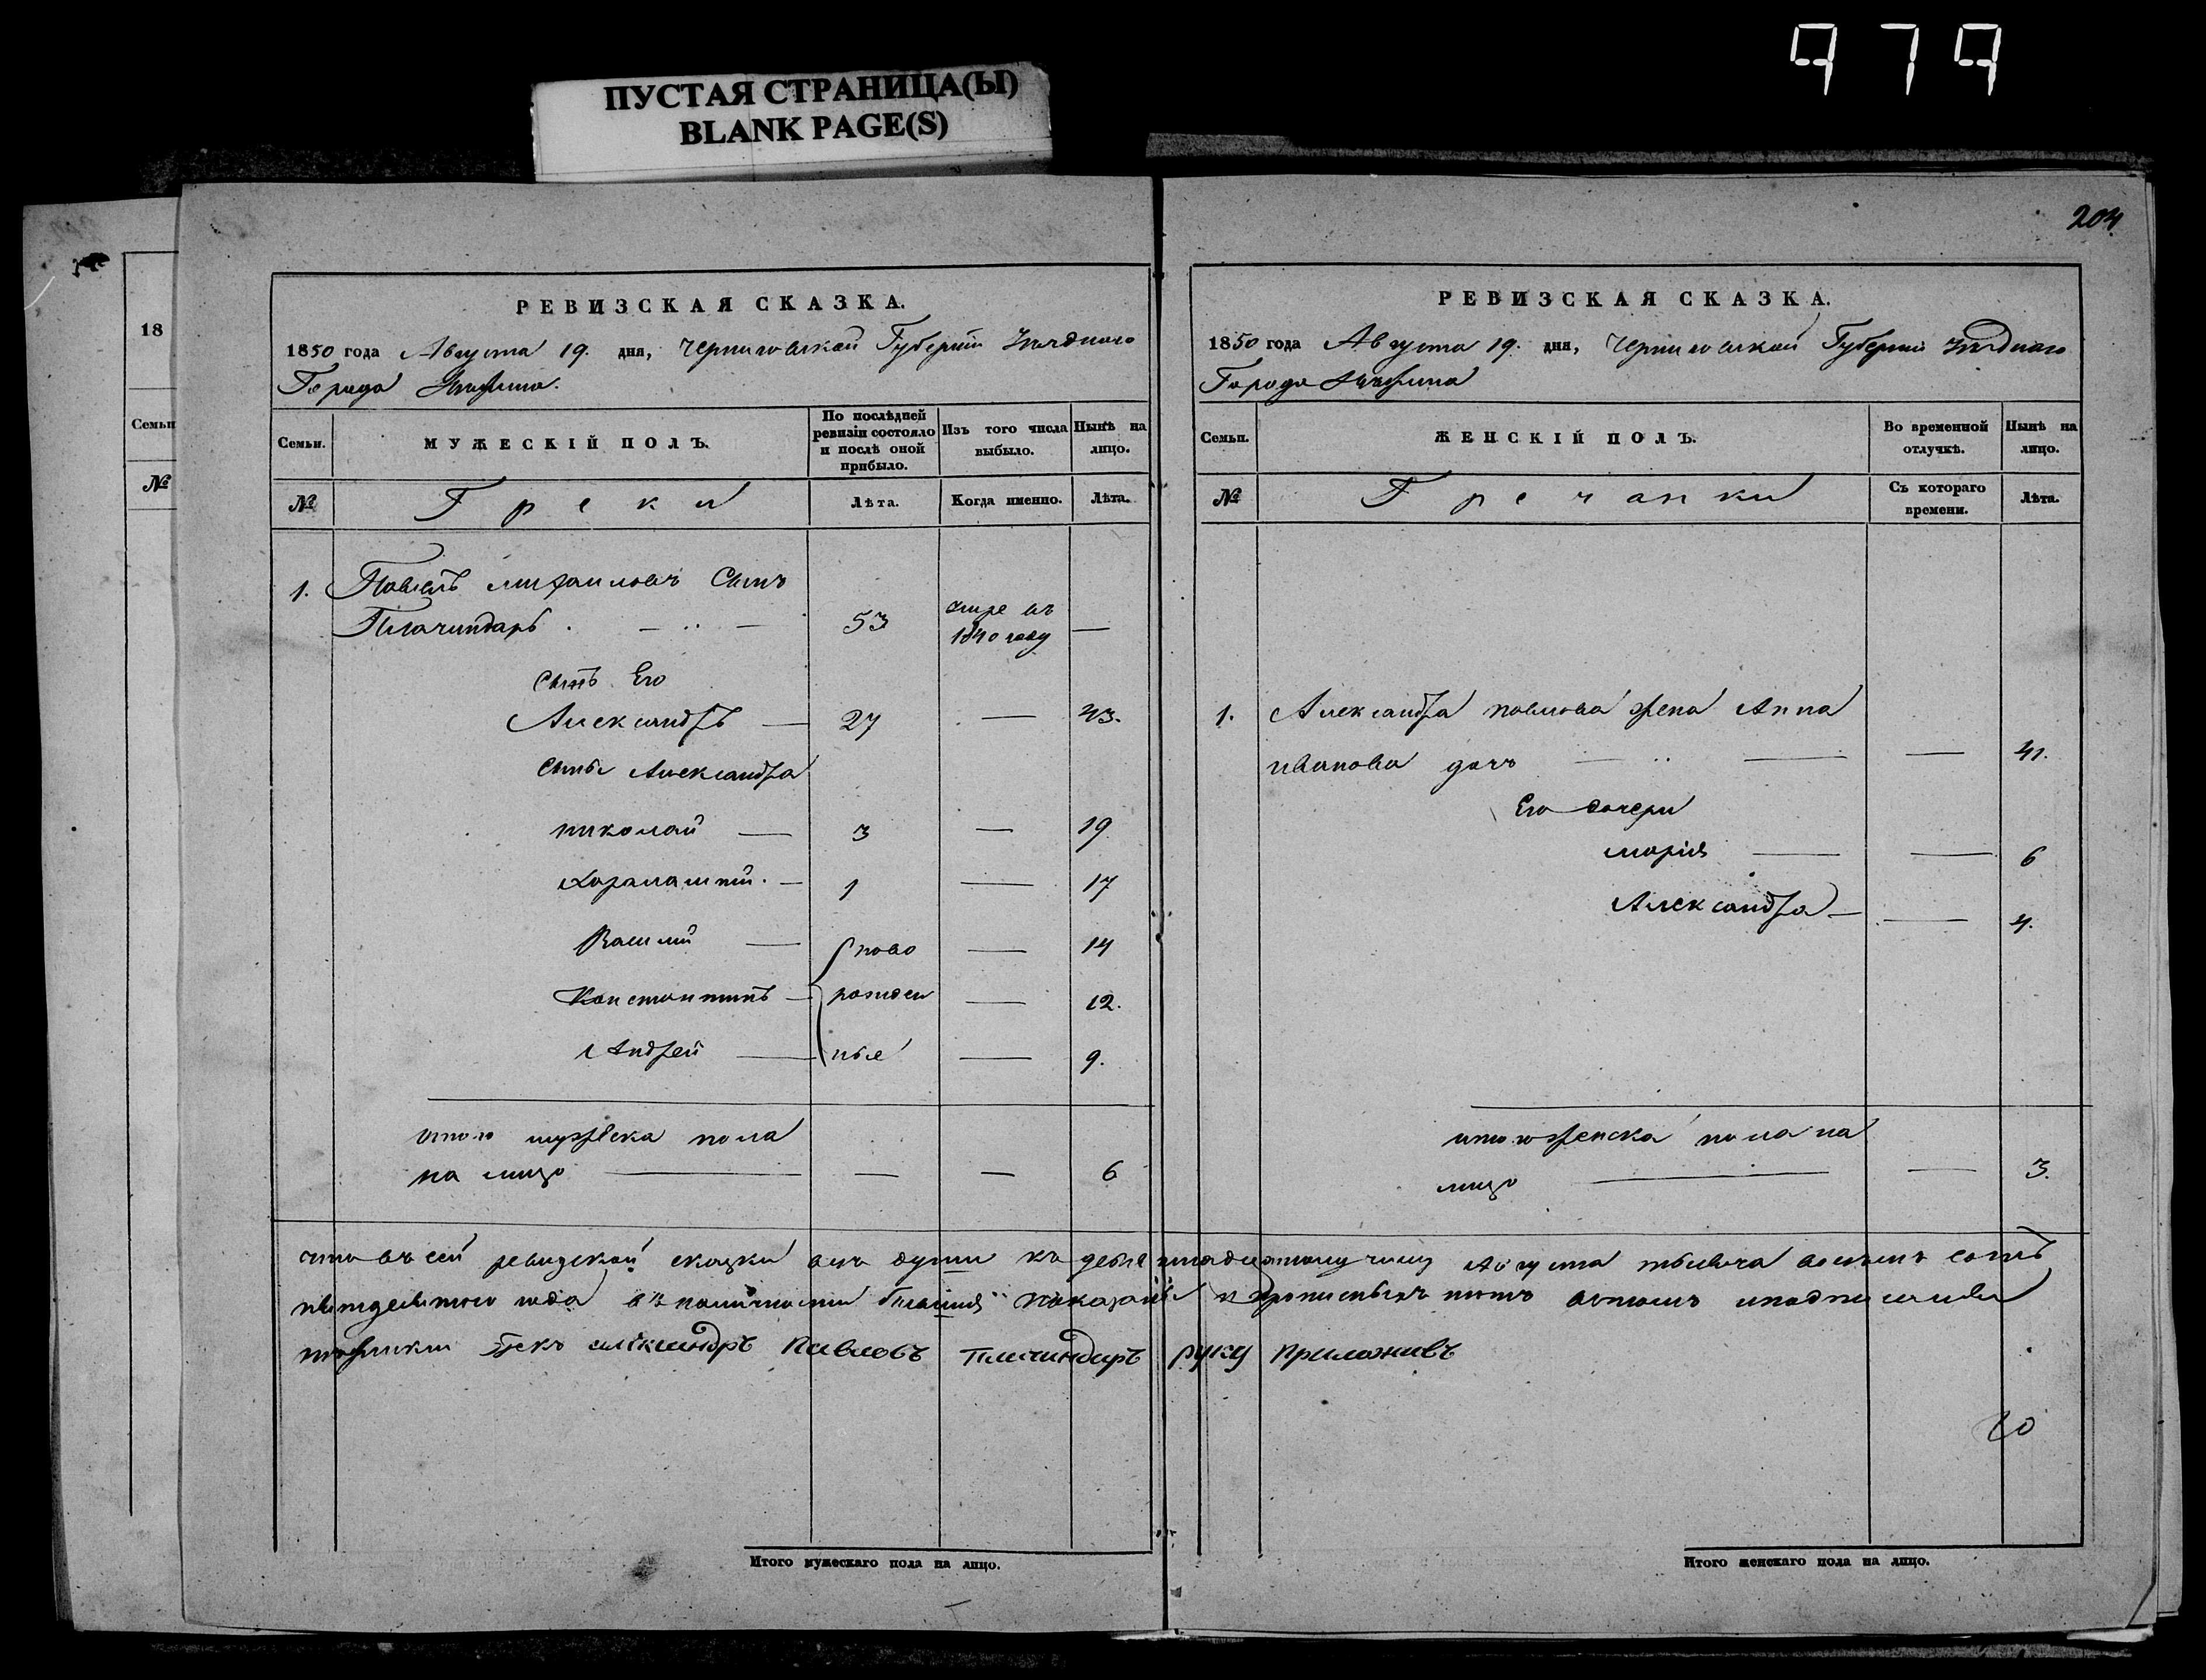 979
ПУСТАЯ СТРАНИЦА(Ы)
BLANK PAGE(S)
204
18
Семьи
№
РЕВИЗСКАЯ СКАЗКА.
1850 года Августа 19. дня, Черниговской Губерніи Уѣзднаго
Города Нѣжина.
Семьи.
МУЖЕСКІЙ ПОЛЪ.
По послѣдней ревизіи состояло и послѣ оной прибыло.
Изъ того числа выбыло.
Нынѣ на лицо.
№
Греки
Лѣта.
Когда именно.
Лѣта.
1. Павелъ михаиловъ Сынъ
Плачиндаръ 53 умре въ 1840 году —
Сынъ Его
Александръ — 27 — 43.
Сыны Александра
николай — 3 — 19
Харалампій — 1 — 17
Василій — ново — 14
Константинъ — рожден — 12.
Андрей — ные — 9.
итого мужеска пола
на лицо — — — 6
РЕВИЗСКАЯ СКАЗКА.
1850 года Августа 19. дня, Черниговской Губерніи Уѣзднаго
Города Нѣжина
Семьи.
ЖЕНСКІЙ ПОЛЪ.
Во временной отлучкѣ.
Нынѣ на лицо.
№
Гречанки
Съ котораго времени.
Лѣта.
1. Александра павлова жена Анна
иванова дочь — 41.
Его дочери
марія — — 6
Александра — — 4.
итого женска пола на
лицо — — 3.
что въ сей ревизской сказки всѣ души къ девятнадцатому числу Августа тысяча восемь сотъ
пятдесятого года въ наличности показаны и прописныхъ нѣтъ вътомъ иподписался
нѣжинский грекъ александръ Павловъ Плачиндаръ руку приложивъ
20
Итого мужескаго пола на лицо.
Итого женскаго пола на лицо.